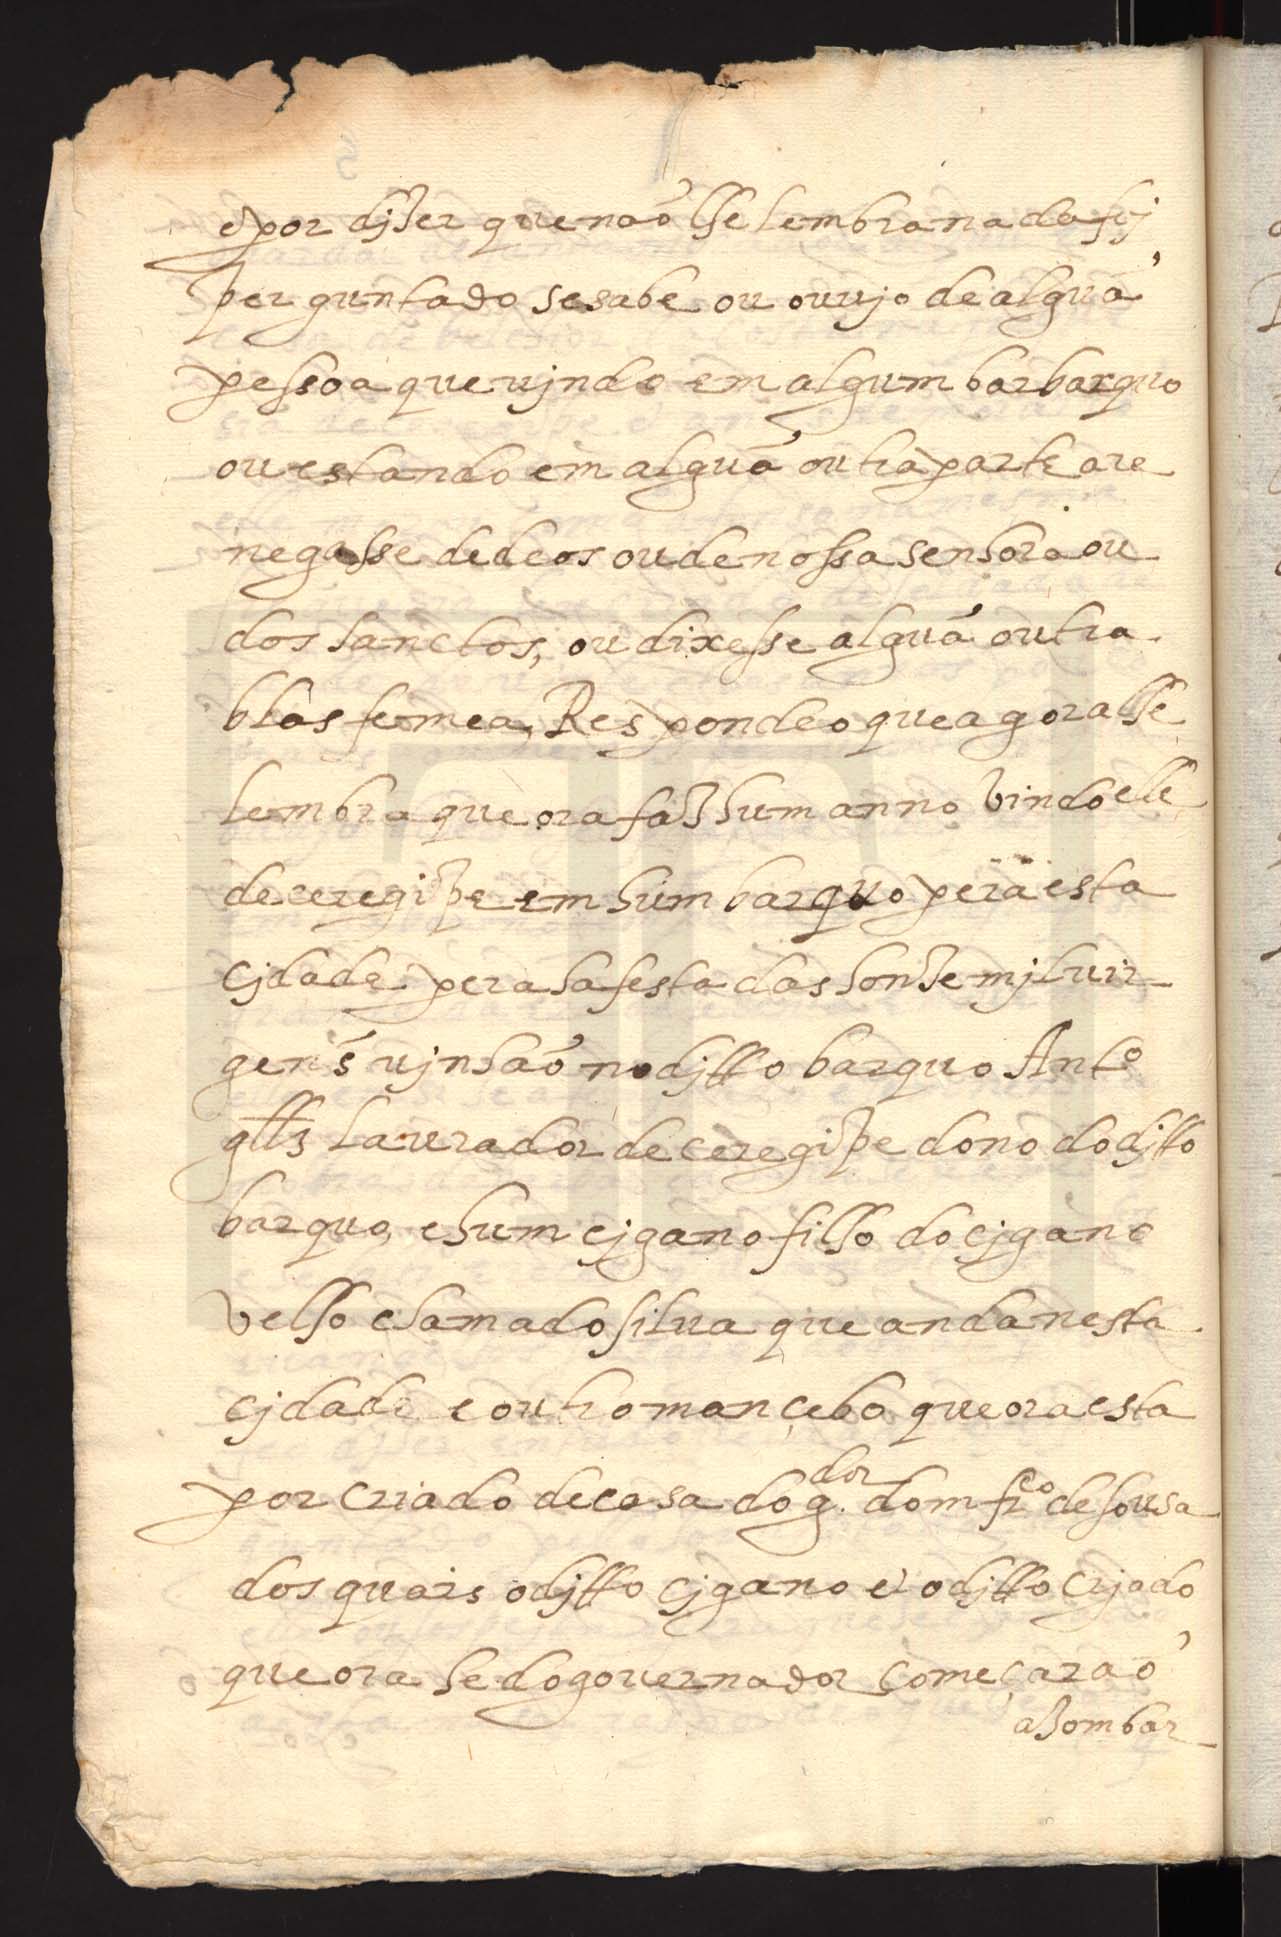 e por djzer que naõ lhe lembra nada foj
perguntado se sabe ou ouujo de alguã
pessoa que vjndo em algum barbarquo
ou estando em alguã outra parte are
negasse de deos ou de nossa senhora ou
dos sanctos, ou dixesse alguã outra
blasfemea, Respondeo que agora lhe
lembra que ora faz hum anno vindo elle
de ceregipe em hum barquo pera esta
cjdade pera ha festa das honze mjl vir
gens vjnhaõ no djtto barquo Antº
glz laurador de ceregipe dono do djtto
barquo, e hum cjgano filho do cjgano
velho chamado silua que anda nesta
cjdade e outro mançebo que ora esta
por criado de casa do g.dor dom frco de sousa
dos quais o djtto cjgano e o djtto crjado
que ora he do gouernador começaraõ
a zombar